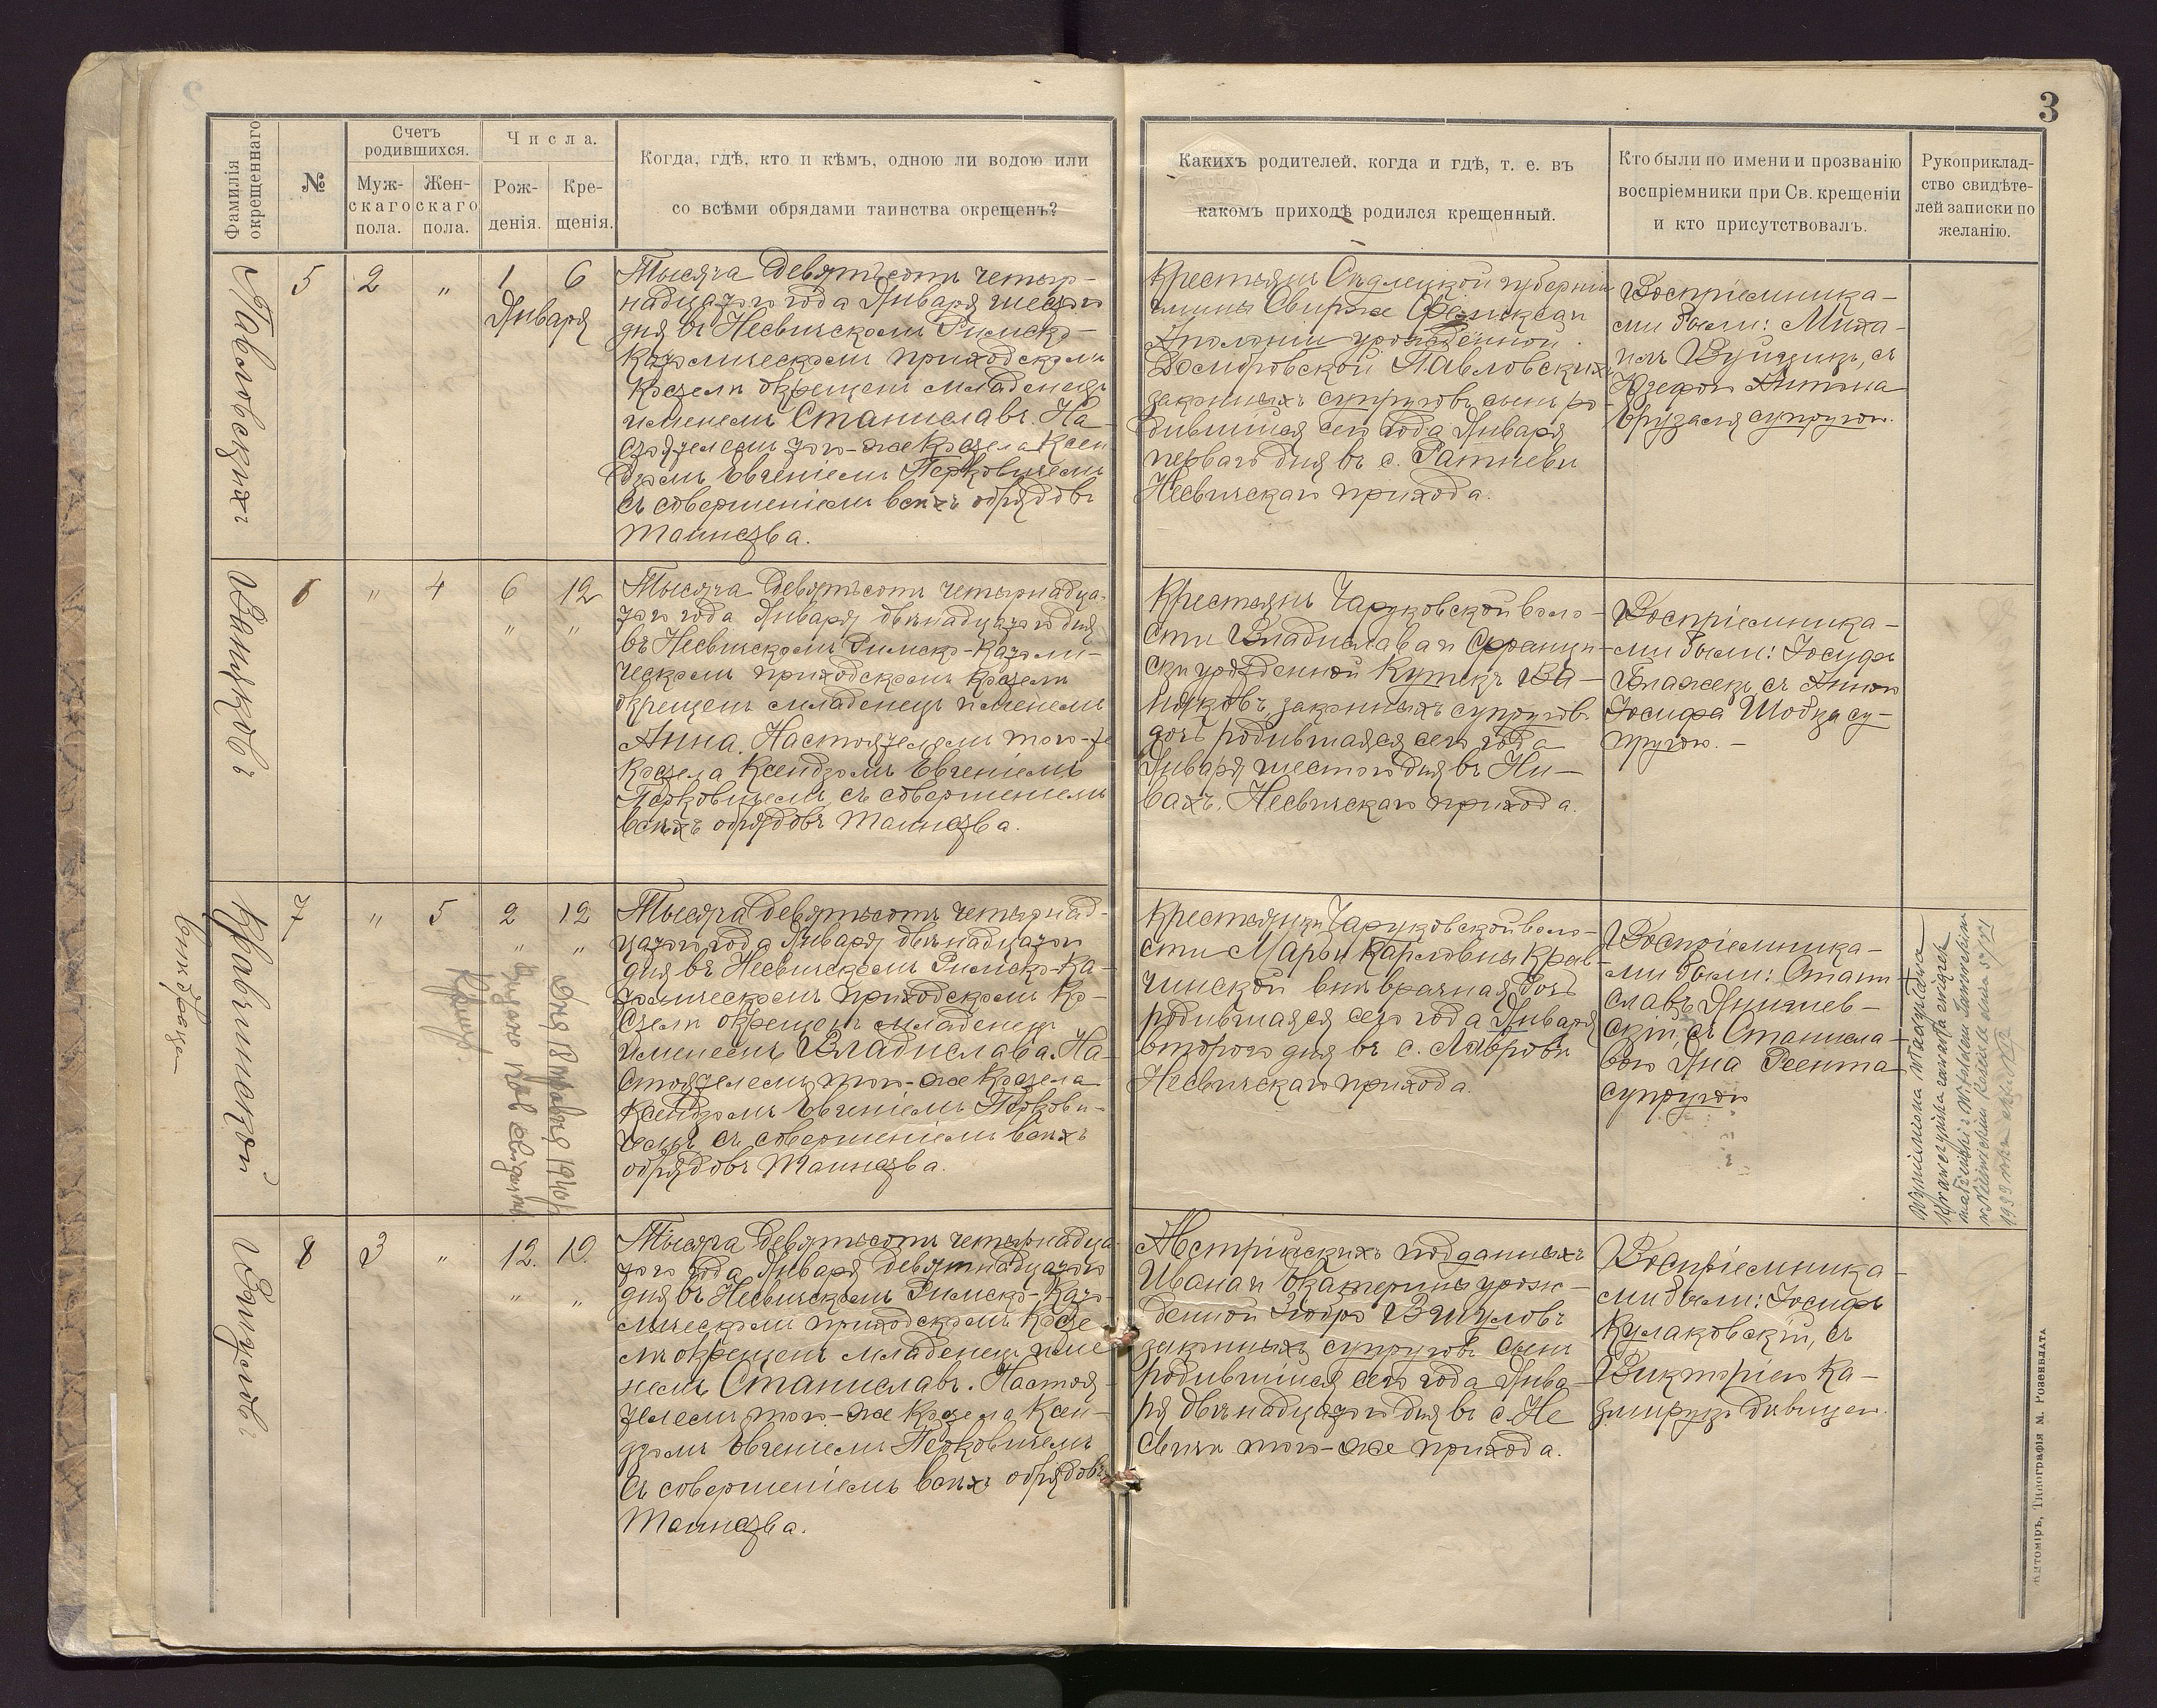 3
Фамилія окрещеннаго
№
Счетъ родившихся.
Муж-
скаго
пола.
Жен-
скаго
пола.
Числа.
Рож-
денія.
Кре-
щенія.
Когда, гдѣ, кто и кѣмъ, одною ли водою или
со всѣми обрядами таинства окрещенъ?
Какихъ родителей, когда и гдѣ, т. е. въ
какомъ приходѣ родился крещенный.
Кто были по имени и прозванію
воспріемники при Св. крещеніи
и кто присутствовалъ.
Рукоприклад-
ство свидѣте-
лей записки по
желанію.
Павловскихъ
5
2
"
1
6
Января
Тысяча девятьсотъ четыр-
надцатого года Января шестого
дня въ Несвичскомъ Римско-
Католическомъ приходскомъ
Костелѣ окрещенъ младенецъ
именемъ Станиславъ. На-
стоятелемъ того-же Костела Ксен-
дзомъ Евгеніемъ Перковичемъ
съ совершеніемъ всѣхъ обрядовъ
Таинства.
Крестьянъ Сѣдлецкой губерніи
гмины Свирже Феликса и
Аполоніи урожденной
Домбровской Павловскихъ
законныхъ супруговъ сынъ ро-
дившійся сего года Января
перваго дня въ с. Ратневѣ
Несвичскаго прихода.
Воспріемника-
ми были: Миха-
илъ Вуйцикъ, съ
Юзефою Антона
супругою.
6
"
4
6
12
"
"
Тысяча девятьсотъ четырнадца-
того года Января двѣнадцатого дня
въ Несвичскомъ Римско-Католи-
ческомъ приходскомъ Костелѣ
окрещенъ младенецъ именемъ
Анна. Настоятелемъ того-же
Костела Ксендзомъ Евгеніемъ
Перковичемъ съ совершеніемъ
всѣхъ обрядовъ Таинства.
Крестьянъ Чаруковской воло-
сти Владислава и Франци-
ски урожденной
законныхъ супруговъ
дочь родившаяся сего года
Января шестого дня въ Ни-
вахъ, Несвичскаго прихода.
Воспріемника-
ми были: Іосифъ
Блажекъ съ Анною
Іосифа су-
пругою.-
Кравчинской
внѣбрач.
7
"
5
2
12
"
"
Дня 18 1940
Тысяча девятьсотъ четырнад-
цатого года Января двѣнадцатого
дня въ Несвичскомъ Римско-Ка-
толическомъ приходскомъ Ко-
стелѣ окрещенъ младенецъ
именемъ Владислава. На-
стоятелемъ того-же Костела
Ксендзомъ Евгеніемъ Перкови-
чемъ съ совершеніемъ всѣхъ
обрядовъ Таинства.
Крестьянки Чаруковской воло-
сти Марьи Карловны Крав-
чинской внѣбрачная дочь
родившаяся сего года Января
второго дня въ с. Лавровѣ
Несвичскаго прихода.
Воспріемника-
ми были: Стани-
славъ
съ Станисла-
вою Яна Реента
супругою
Wymieniona Władysława
Krawczyńska zawarła związek
małżeński z Witoldem Jaworskim
w Nieświczu
1933 roku
8
3
"
12.
19.
"
"
Тысяча девятьсотъ четырнадца-
того года Января девятнадцатого
дня въ Несвичскомъ Римско-Като-
лическомъ приходскомъ Косте-
лѣ окрещенъ младенецъ име-
немъ Станиславъ. Настоя-
телемъ того-же Костела Ксен-
дзомъ Евгеніемъ Перковичемъ
съ совершеніемъ всѣхъ обрядовъ
Таинства.
Австрійскихъ подданныхъ
Ивана и Екатерины урож-
денной
законныхъ супруговъ сынъ
родившійся сего года Янва-
ря двѣнадцатого дня въ с. Не-
свичи того-же прихода.
Воспріемника-
ми были: Іосифъ
Кулаковскій, съ
Викторіею Ка-
дѣвицею.
Житоміръ, Типографія М. Розенблата